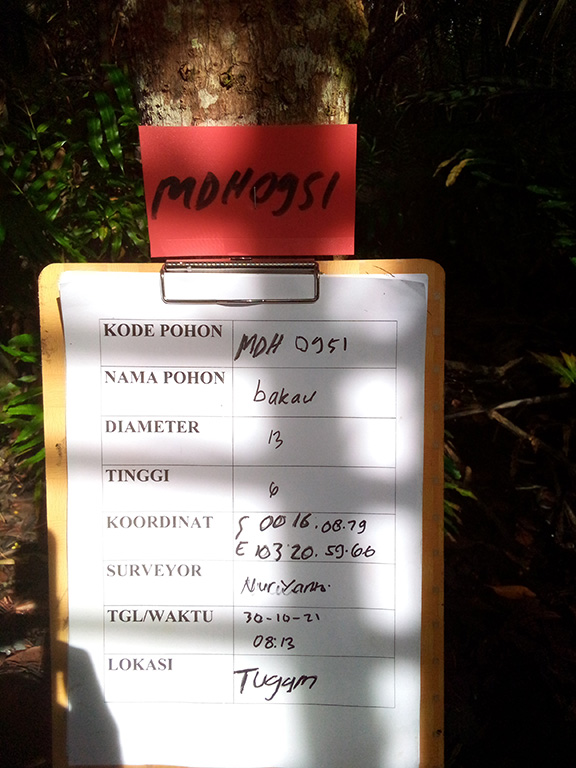 MDH0951
KODE POHON MDH 0951
NAMA POHON bakau
DIAMETER 13
TINGGI 6
KOORDINAT S 00 16.08.79
E 103 20.59.60
SURVEYOR Nuriyanto.
TGL/WAKTU 30-10-21
08:13
LOKASI Tugam